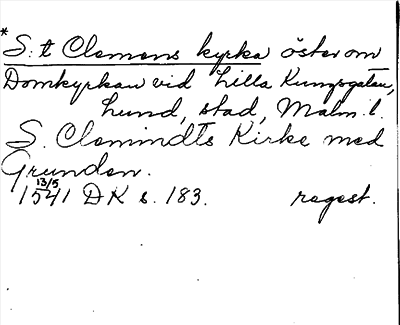 * S:t Clemens kyrka öster om
Domkyrkan vid Lilla Kungsgatan,
Lund, stad, Malm. l.
S. Clemindts Kirke med
Grunden.
13/5
1541 DK s. 183. regest.